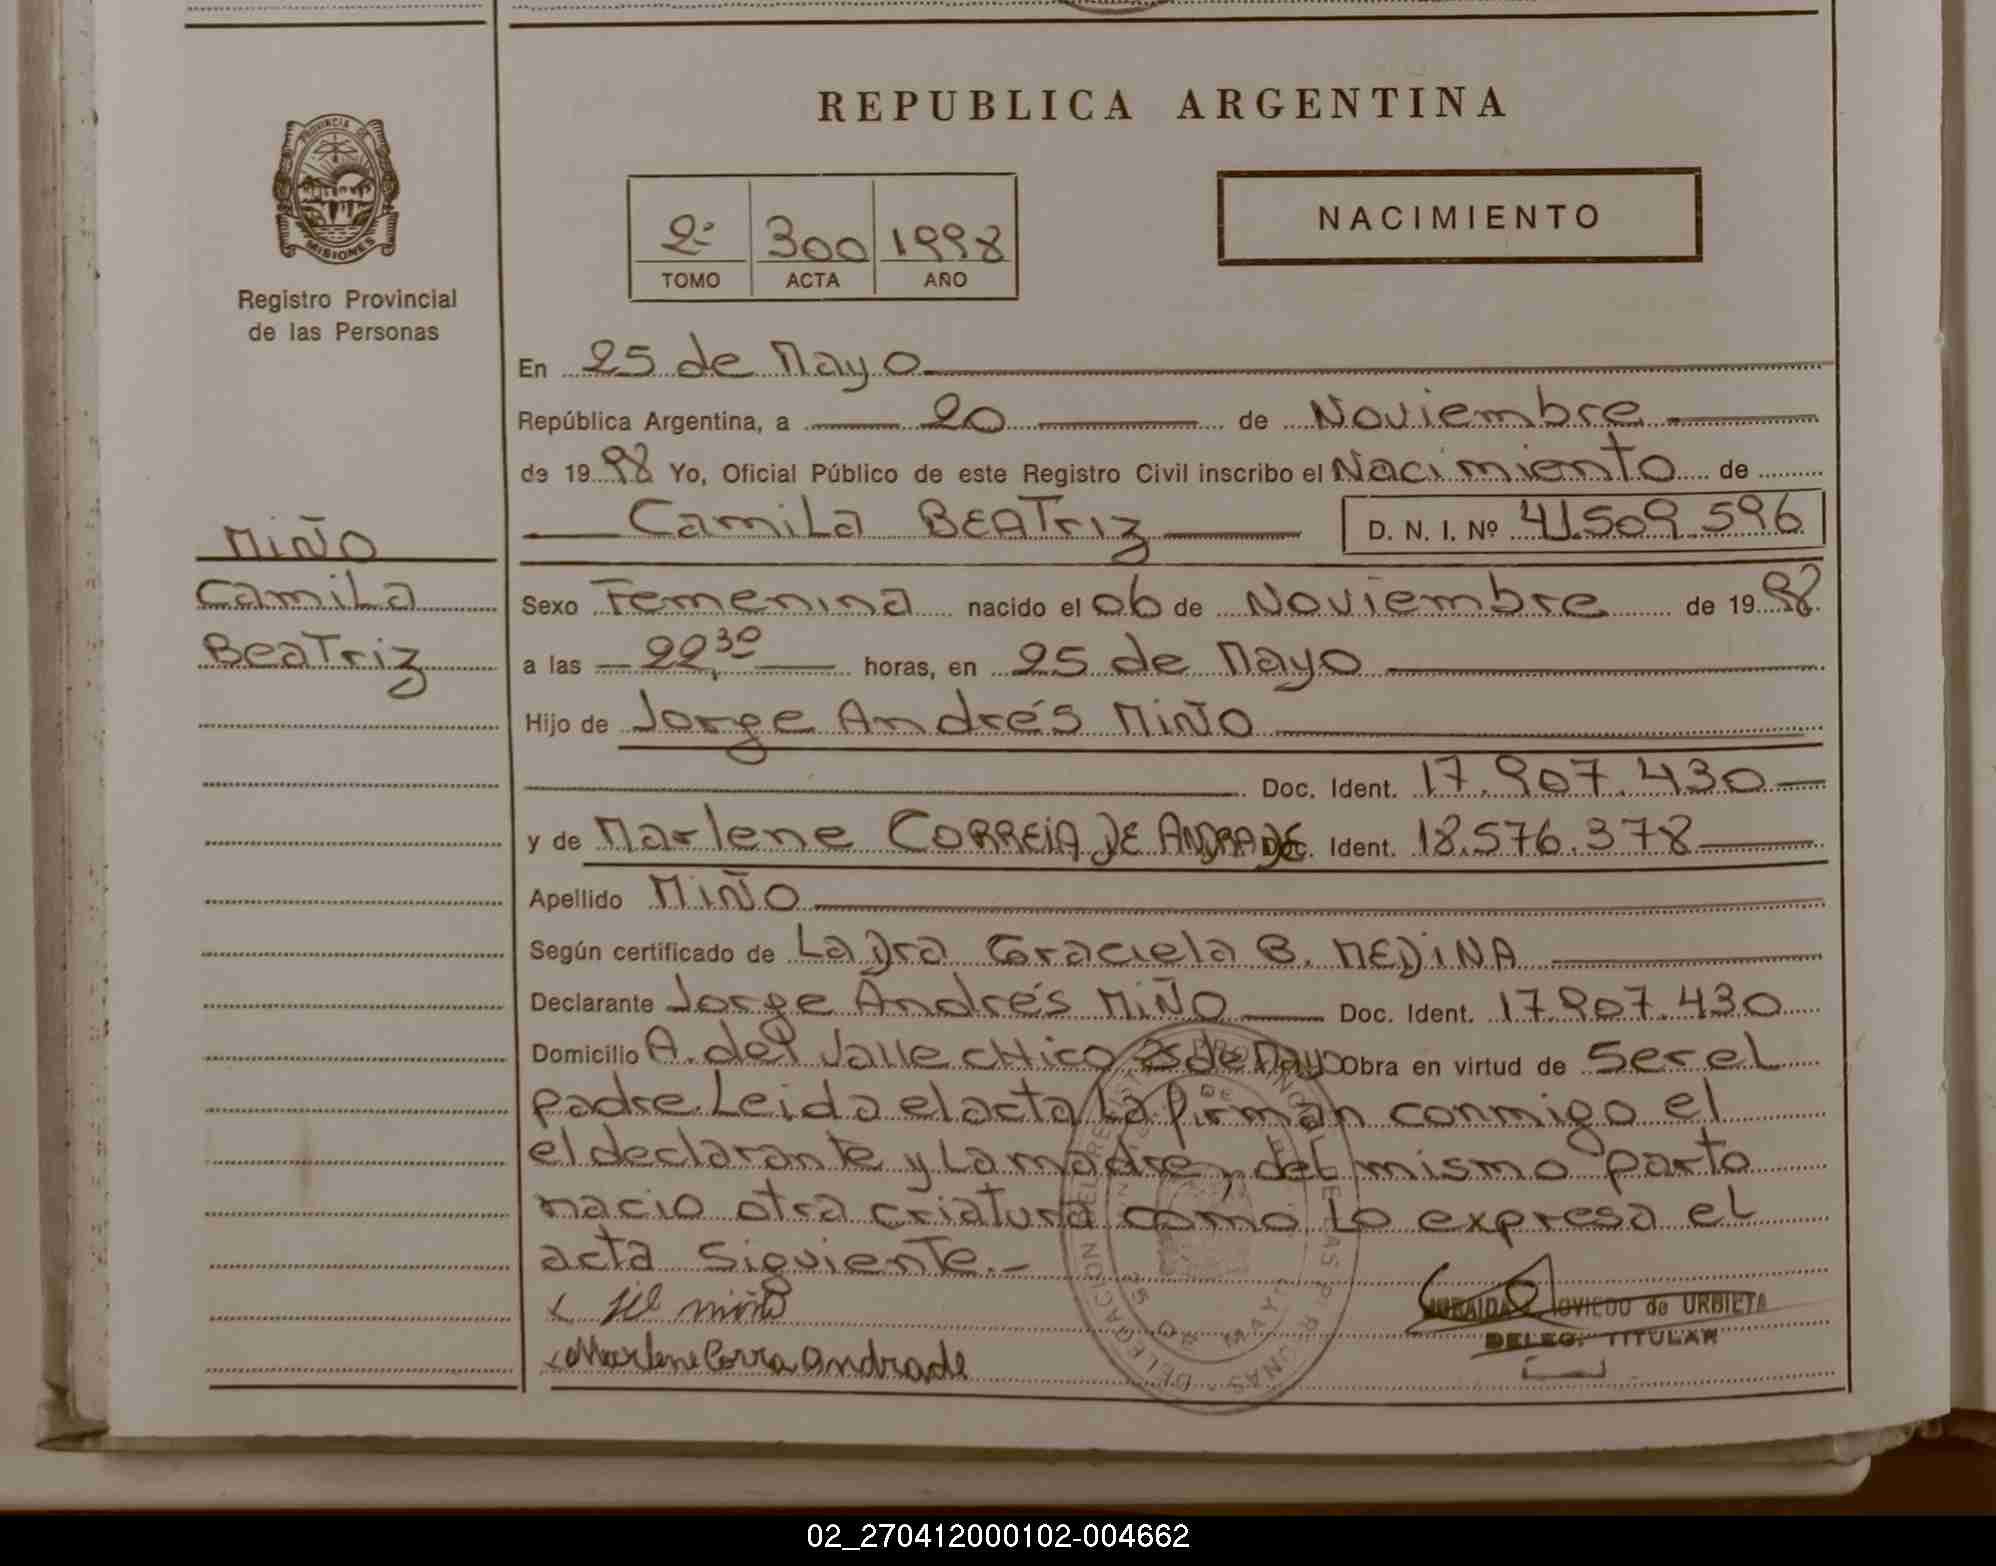 REPUBLICA ARGENTINA
PROVINCIA DE
MISIONES
Registro Provincial
de las Personas
2º 300 1998
TOMO ACTA AÑO
NACIMIENTO
En 25 de Mayo
República Argentina, a 20 de Noviembre
de 1998 Yo, Oficial Público de este Registro Civil inscribo el Nacimiento de
Camila BEATriz D. N. I. Nº 41.509.596
MiÑO
Camila
BeaTriz
Sexo Femenina nacido el 06 de Noviembre de 1998
a las 22,30 horas, en 25 de Mayo
Hijo de Jorge Andrés MiÑO
Doc. Ident. 17.907.430
y de Marlene CORREiA DE ANDRADE Doc. Ident. 18.576.378
Apellido MiÑO
Según certificado de La Dra Graciela B. MEDiNA
Declarante Jorge Andrés MiÑO Doc. Ident. 17.907.430
Domicilio A. del Valle CHico 25 de Mayo Obra en virtud de Ser el
padre. Leida el acta la firman conmigo el
el declarante y La madre, del mismo parto
nacio otra criatura como Lo expresa el
acta siguiente.-
x miño
x Marlene Corra andrade
OVIEDO de URBIETA
DELEG. TITULAR
DELEGACION DEL REGISTRO PROVINCIAL DE LAS PERSONAS
25 DE MAYO
02_270412000102-004662